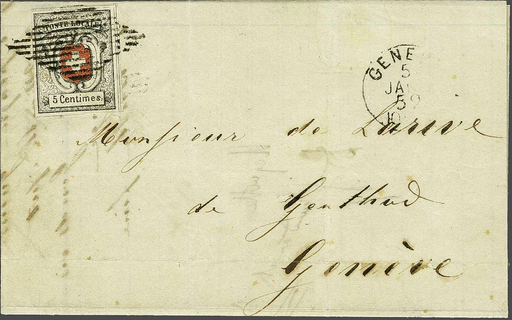 POSTE LOCALE
5 Centimes.
GENE
5
JA
50
Monsieur de Larive
de Genthod
Genève